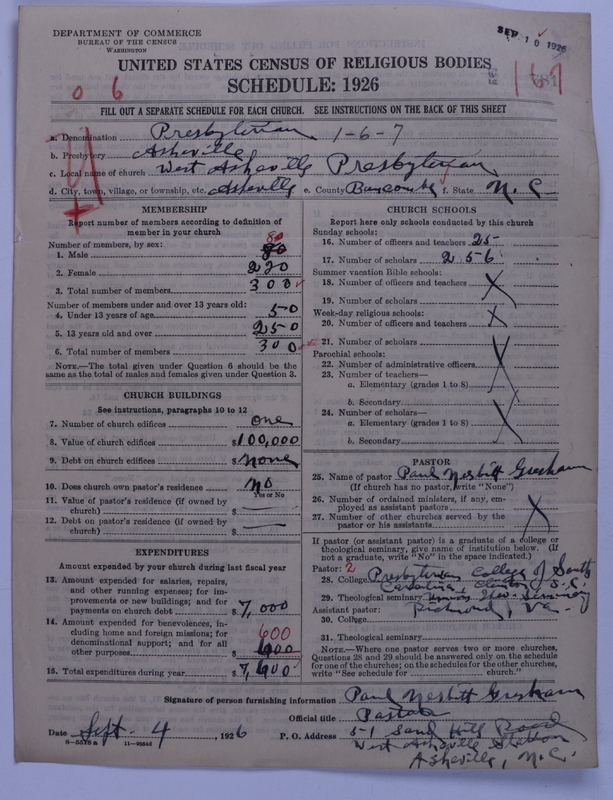 DEPARTMENT OF COMMERCE
BUREAU OF THE CENSUS
WASHINGTON
SEP 10 1926
UNITED STATES CENSUS OF RELIGIOUS BODIES
SCHEDULE: 1926
0 6
167
FILL OUT A SEPARATE SCHEDULE FOR EACH CHURCH. SEE INSTRUCTIONS ON THE BACK OF THIS SHEET
a. Denomination Presbyterian 1-6-7
b. Presbytery Asheville
c. Local name of church West Asheville Presbyterian
d. City, town, village, or township, etc. Asheville e. County Buncombe f. State N. C.
MEMBERSHIP
Report number of members according to definition of member in your church
Number of members, by sex:
1. Male 80 80
2. Female 220
3. Total number of members 300
Number of members under and over 13 years old:
4. Under 13 years of age 50
5. 13 years old and over 250
6. Total number of members 300
NOTE.—The total given under Question 6 should be the same as the total of males and females given under Question 3.
CHURCH BUILDINGS
See instructions, paragraphs 10 to 12
7. Number of church edifices one
8. Value of church edifices $100,000
9. Debt on church edifices $None
10. Does church own pastor's residence? No
Yes or No
11. Value of pastor's residence (if owned by church) $
12. Debt on pastor's residence (if owned by church) $
EXPENDITURES
Amount expended by your church during last fiscal year
13. Amount expended for salaries, repairs, and other running expenses; for improvements or new buildings; and for payments on church debt $7,000
14. Amount expended for benevolences, including home and foreign missions; for denominational support; and for all other purposes 600 $
15. Total expenditures during year $7,600
CHURCH SCHOOLS
Report here only schools conducted by this church
Sunday schools:
16. Number of officers and teachers 25
17. Number of scholars 256
Summer vacation Bible schools:
18. Number of officers and teachers
19. Number of scholars
Week-day religious schools:
20. Number of officers and teachers
21. Number of scholars
Parochial schools:
22. Number of administrative officers
23. Number of teachers—
a. Elementary (grades 1 to 8)
b. Secondary
24. Number of scholars—
a. Elementary (grades 1 to 8)
b. Secondary
PASTOR
25. Name of pastor Paul Nesbitt Gresham
(If church has no pastor, write "None")
26. Number of ordained ministers, if any, employed as assistant pastors
27. Number of other churches served by the pastor or his assistants
If pastor (or assistant pastor) is a graduate of a college or theological seminary, give name of institution below. (If not a graduate, write "No" in the space indicated.)
Pastor: 2
28. College Presbyterian College of South Carolina, Clinton S.C.
29. Theological seminary Union Theo. Seminary
Assistant pastor: Richmond, Va.
30. College
31. Theological seminary
NOTE.—Where one pastor serves two or more churches, Questions 28 and 29 should be answered only on the schedule for one of the churches; on the schedules for the other churches, write "See schedule for church."
Signature of person furnishing information Paul Nesbitt Gresham
Official title Pastor
Date Sept. 4 1926 P. O. Address 51 Sand Hill Road
West Asheville Station
Asheville, N.C.